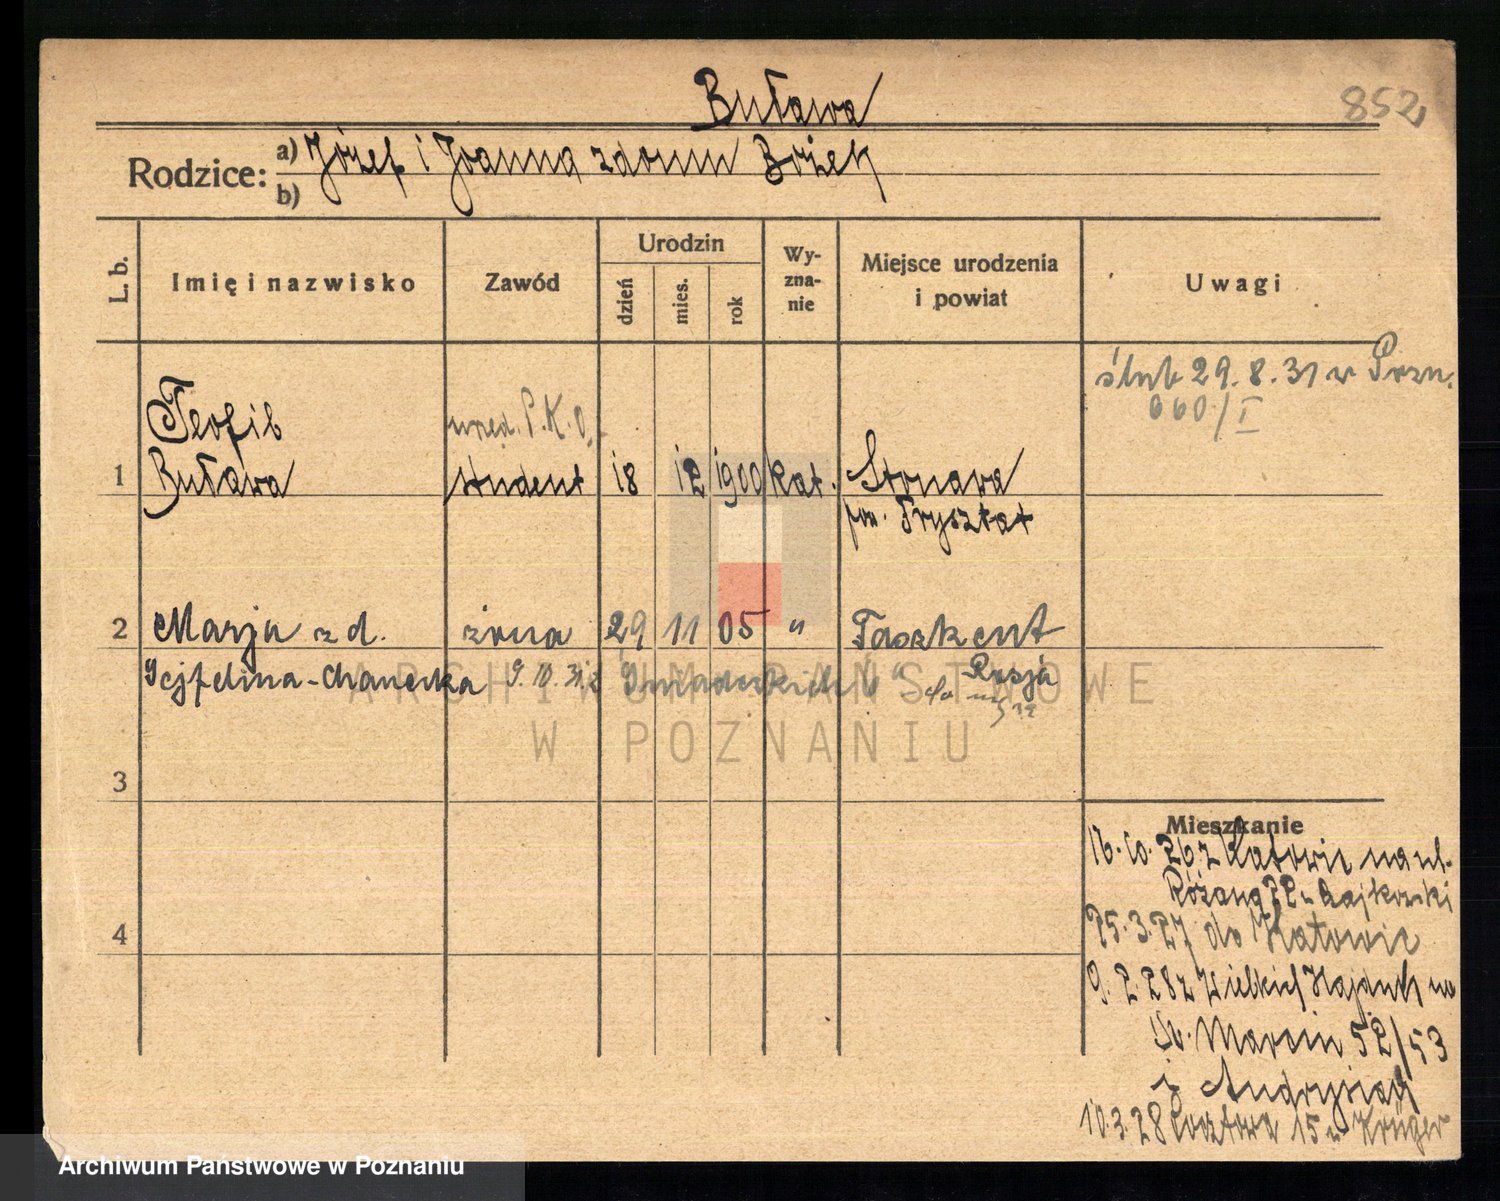 Buława
852
Rodzice: a) Józef i Joanna z domu Bożek
b)
L. b.
Imię i nazwisko
Zawód
Urodzin
dzień
mies.
rok
Wy-
zna-
nie
Miejsce urodzenia
i powiat
Uwagi
ślub 29.8.31 w Pozn.
660/I
Teofil
urzęd. P.K.O.
1 Buława student 18 12 1900 kat. Stonawa
pow. Frysztat
2 Marja z d. żona 29 11 05 " Taszkent
Rosja
ARCHIWUM PAŃSTWOWE
W POZNANIU
3
Mieszkanie
16.10.26 z Katowic na ul.
Różana
25.3.27 do Katowic
4
9.2.28 z Wielkich Hajduk na
Św. Marcin 52/53
10.3.28 15 u Krüger
Archiwum Państwowe w Poznaniu